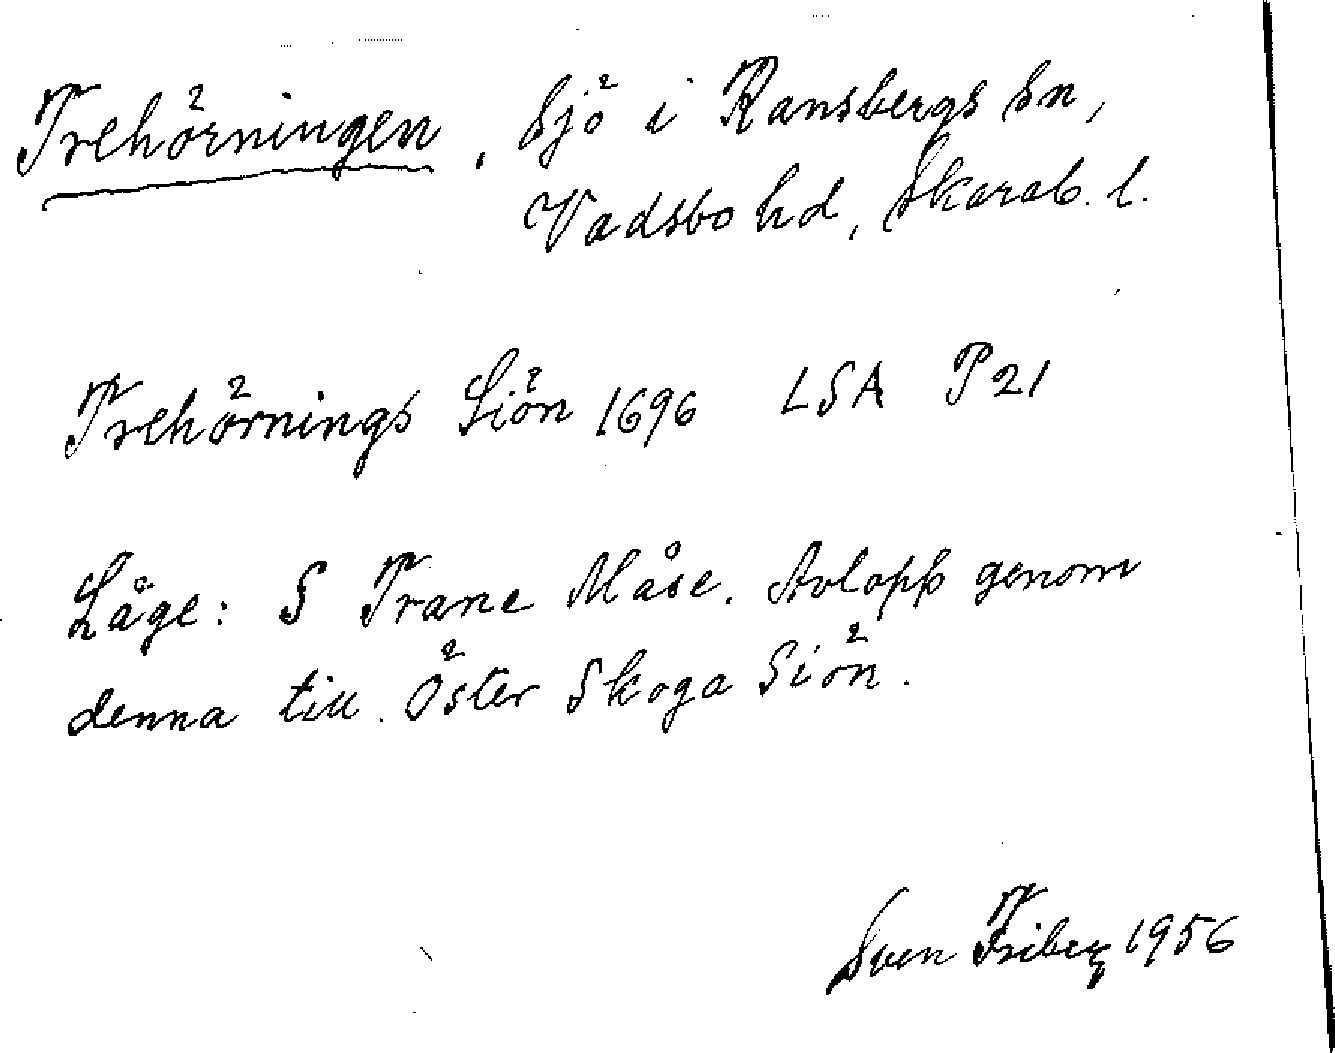 Trehörningen. Sjö i Ransbergs sn,
Vadsbo hd, Skarab. l.
Trehörnings Siön 1696 LSA P21
Läge: S Trane Måse. Avlopp genom
denna till Öster Skoga Siön.
Sven Friberg 1956